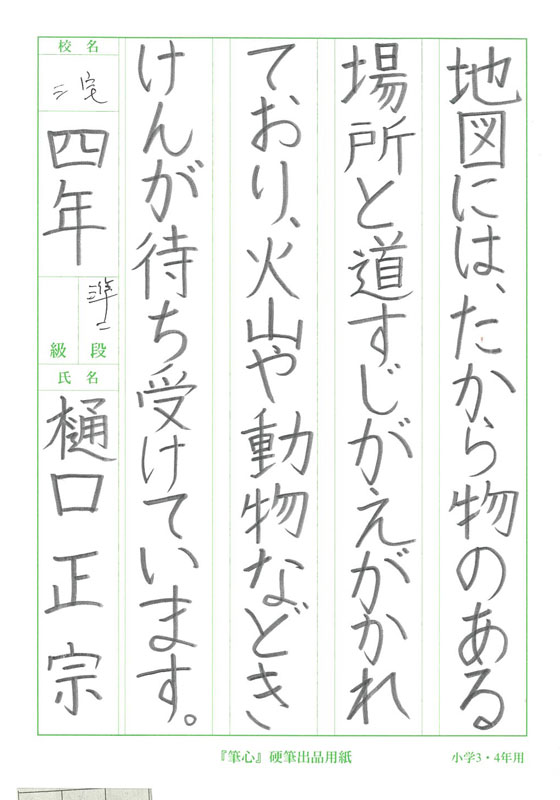 地図には、たから物のある
場所と道すじがえがかれ
ており、火山や動物などき
けんが待ち受けています。
校名
三宅
四年
準二
段
級
氏名
樋口正宗
『筆心』硬筆出品用紙
小学3・4年用